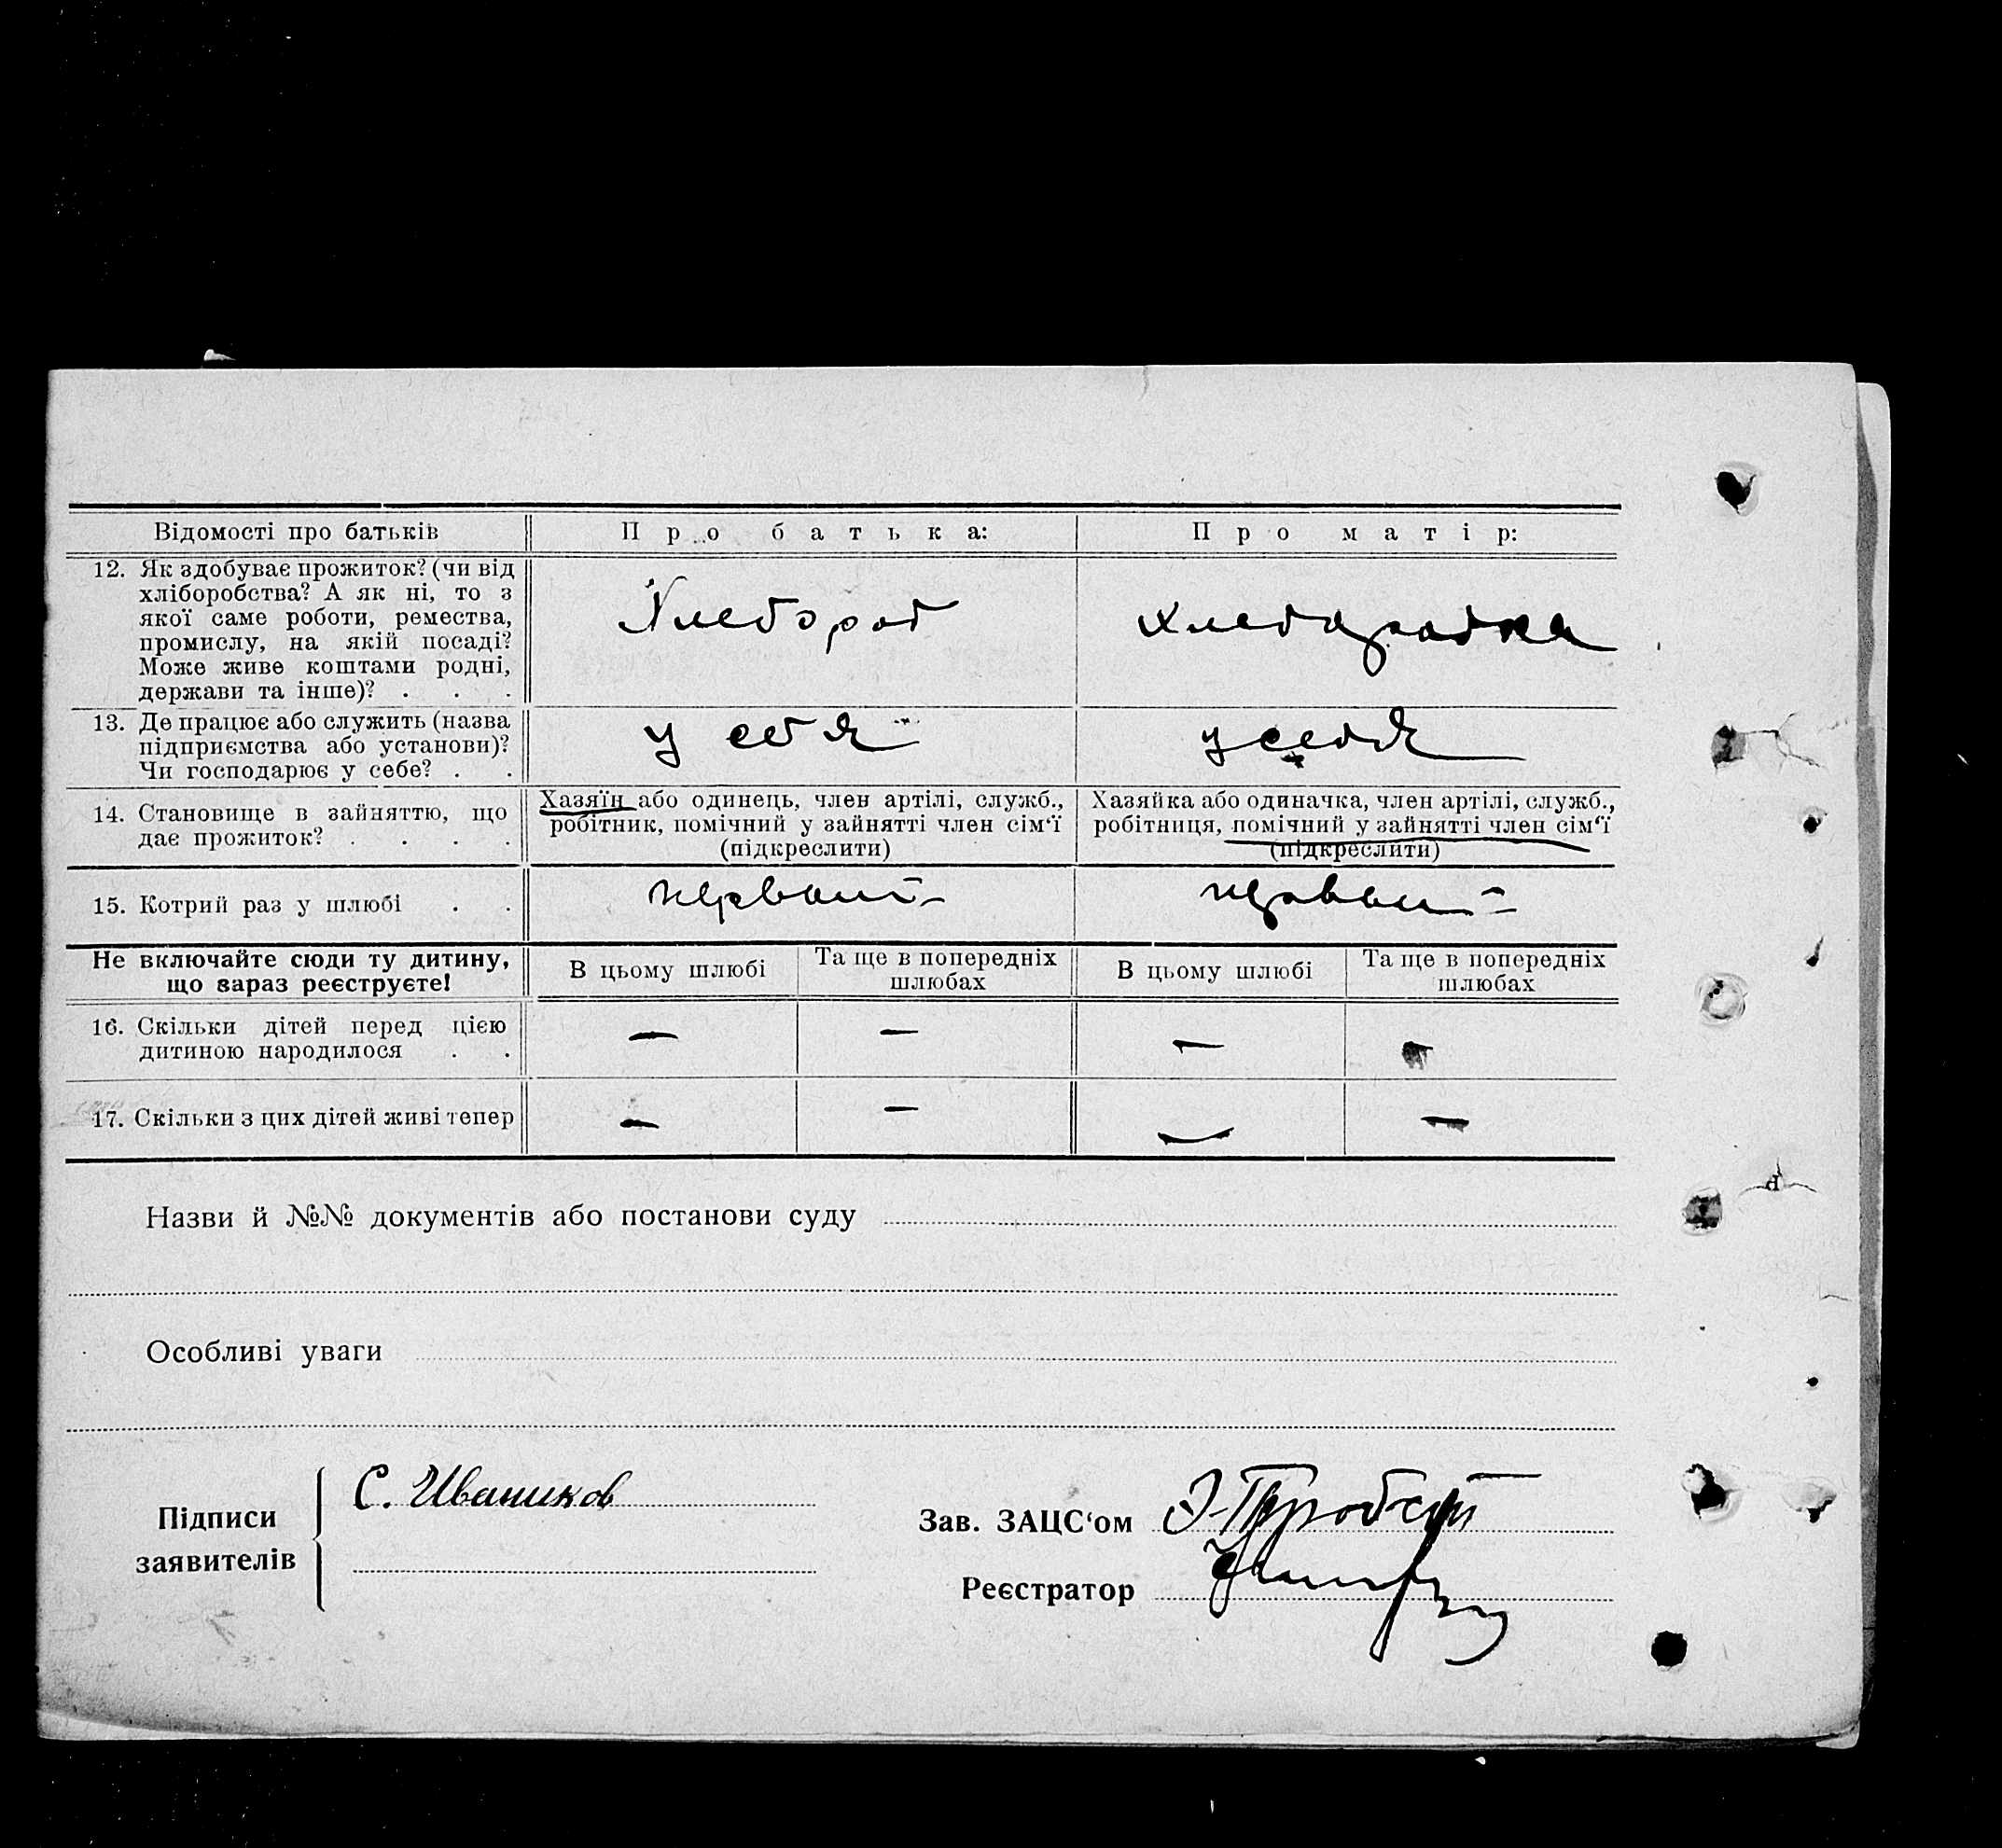 Відомості про батьків
Про батька:
Про матір:
12. Як здобуває прожиток? (чи від
хліборобства? А як ні, то з
якої саме роботи, ремества,
промислу, на якій посаді?
Може живе коштами родні,
держави та інше)? . . .
Хлебороб
хлеборобка
13. Де працює або служить (назва
підприємства або установи)?
Чи господарює у себе? . .
у себя
у себя
14. Становище в зайняттю, що
дає прожиток? . . . .
Хазяїн або одинець, член артілі, служб.,
робітник, помічний у зайнятті член сім‘ї
(підкреслити)
Хазяйка або одиначка, член артілі, служб.,
робітниця, помічний у зайнятті член сім‘ї
(підкреслити)
15. Котрий раз у шлюбі . .
первый
первый
Не включайте сюди ту дитину,
що зараз реєструєте!
В цьому шлюбі
Та ще в попередніх
шлюбах
В цьому шлюбі
Та ще в попередніх
шлюбах
16. Скільки дітей перед цією
дитиною народилося . .
— — —
17. Скільки з цих дітей живі тепер
— — — —
Назви й №№ документів або постанови суду
Особливі уваги
Підписи
заявителів
С. Иваников
Зав. ЗАЦС‘ом
Реєстратор